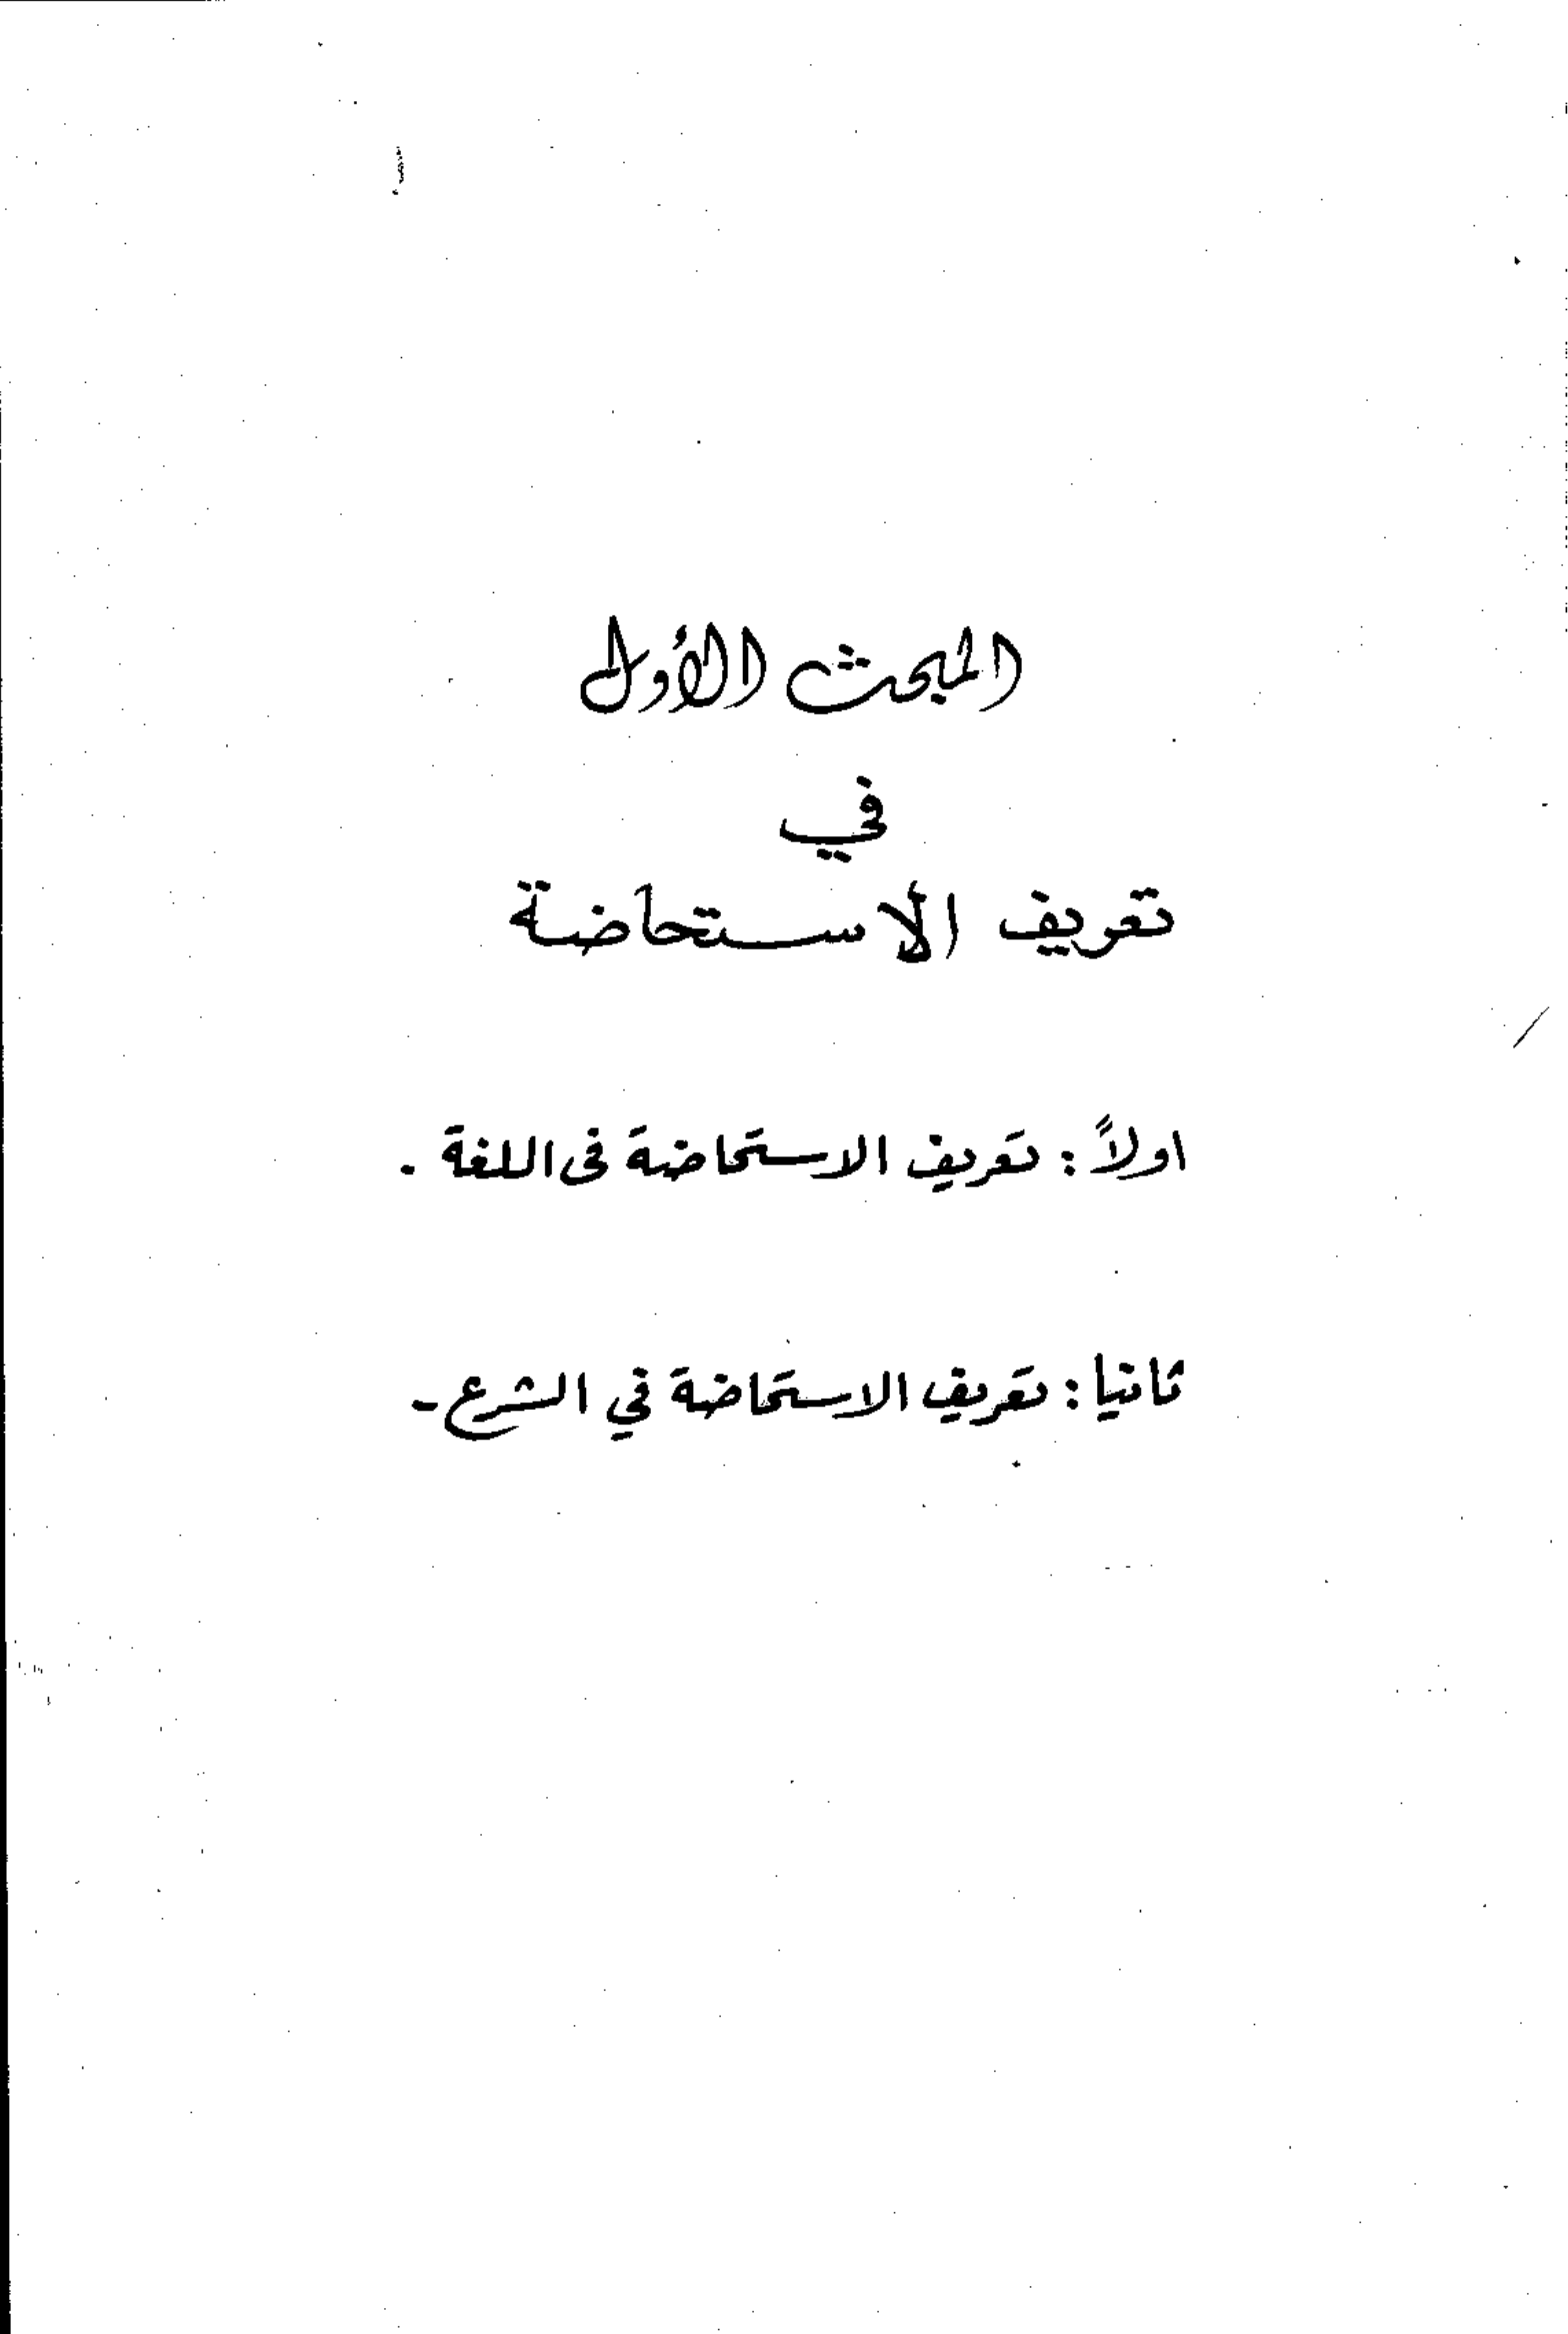 المبحث الأول
في
تعريف الاستحاضة
اولاً : تعريف الاستحاضة فى اللغة .
ثانيا : تعريف الاستحاضة في الشرع -